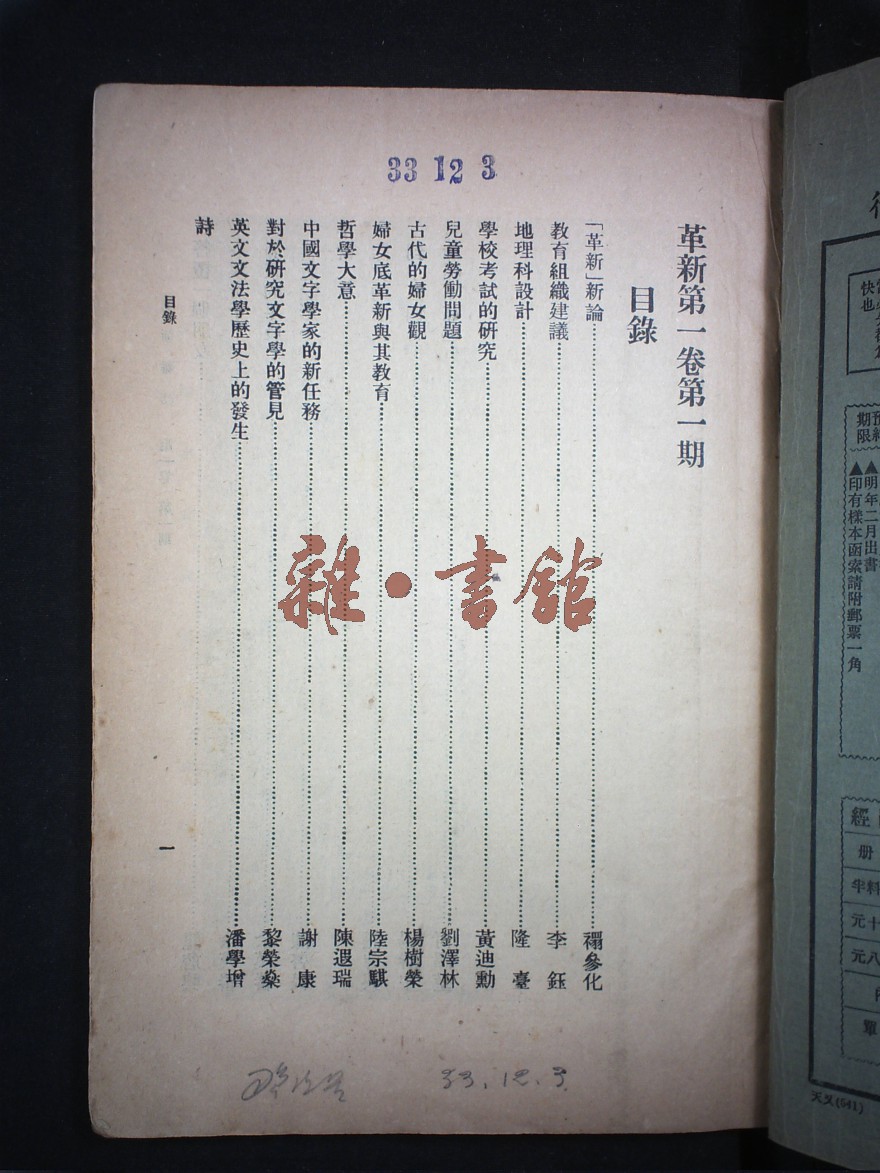 33 12 3
革新第一卷第一期
目錄
「革新」新論……禤參化
教育組織建議……李鈺
地理科設計……隆臺
學校考試的研究……黃迪勳
兒童勞働問題……劉澤林
古代的婦女觀……楊樹榮
婦女底革新與其教育……陸宗騏
哲學大意……陳遐瑞
中國文字學家的新任務……謝康
對於研究文字學的管見……黎榮燊
英文文法學歷史上的發生……潘學增
詩
目錄
一
雜·書館
33.12.3
快也
期限
▲明年二月出書
▲印有樣本函索請附郵票一角
經
册
料半
元十
元八
單
天又(641)